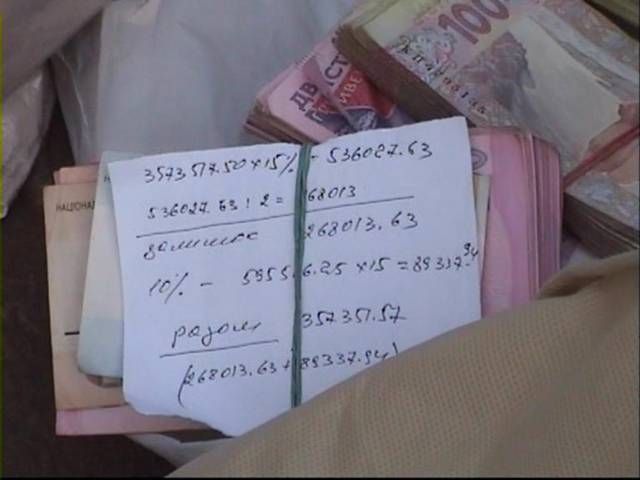 100
ДВІСТ
ГРИВЕ
3573517.50 × 15% - 536027.63
536027.63 : 2 = 68013
залишок 268013.63
10% - 5955 6.25 × 15 = 89337.94
разом 357351.57
(268013.63 + 89337.94)
НАЦІОНА
НАЦ